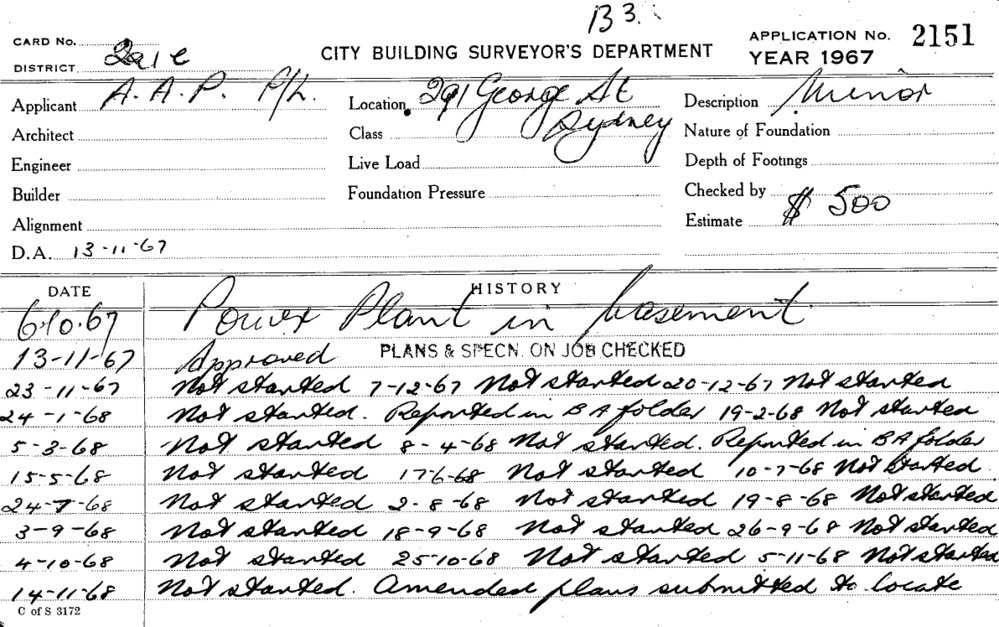 B 3.
CARD No.
DISTRICT
CITY BUILDING SURVEYOR'S DEPARTMENT
APPLICATION No. 2151
YEAR 1967
Applicant A. A. P. P/L.
Location 291 George St Sydney
Description Minor
Architect
Class
Nature of Foundation
Engineer
Live Load
Depth of Footings
Builder
Foundation Pressure
Checked by
Alignment
Estimate $ 500
D.A. 13-11-67
DATE HISTORY
6.10.67 Power Plant in basement.
13-11-67 Approved PLANS & SPECN. ON JOB CHECKED
23-11-67 Not started 7-12-67 Not started 20-12-67 Not started
24-1-68 Not started. Reported in B A folder 19-2-68 Not started
5-3-68 Not started 8-4-68 Not started. Reported in B A folder
15-5-68 Not started 17-6-68 Not started 10-7-68 Not Started
24-7-68 Not started 2-8-68 Not started 19-8-68 Not started
3-9-68 Not started 18-9-68 Not started 26-9-68 Not started
4-10-68 Not started 25-10-68 Not started 5-11-68 Not started
14-11-68 Not started. Amended plans submitted to locate
C of S 3172